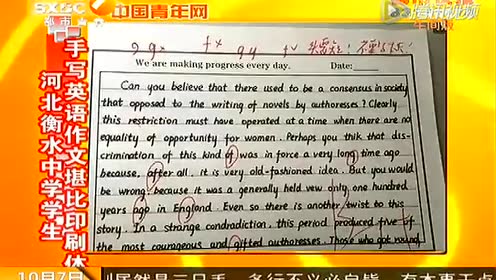 SXBC
都市
中国青年网
腾讯视频
手写英语作文堪比印刷体
河北衡水中学学生
We are making progress every day. Date:
Can you believe that there used to be a consensus in society
that opposed to the writing of novels by authoresses? Clearly
this restriction must have operated at a time when there are no
equality of opportunity for women. Perhaps you thik that dis-
crimination of this kind of was in force a very long time ago
because, after all, it is very old-fashioned idea. But you would
be wrong, because it was a generally held vew only one hundred
years ago in England. Even so there is another twist to this
story. In a strange condradiction, this period produced five of
the most courageous and gifted authoresses. Those who got round
10月7日